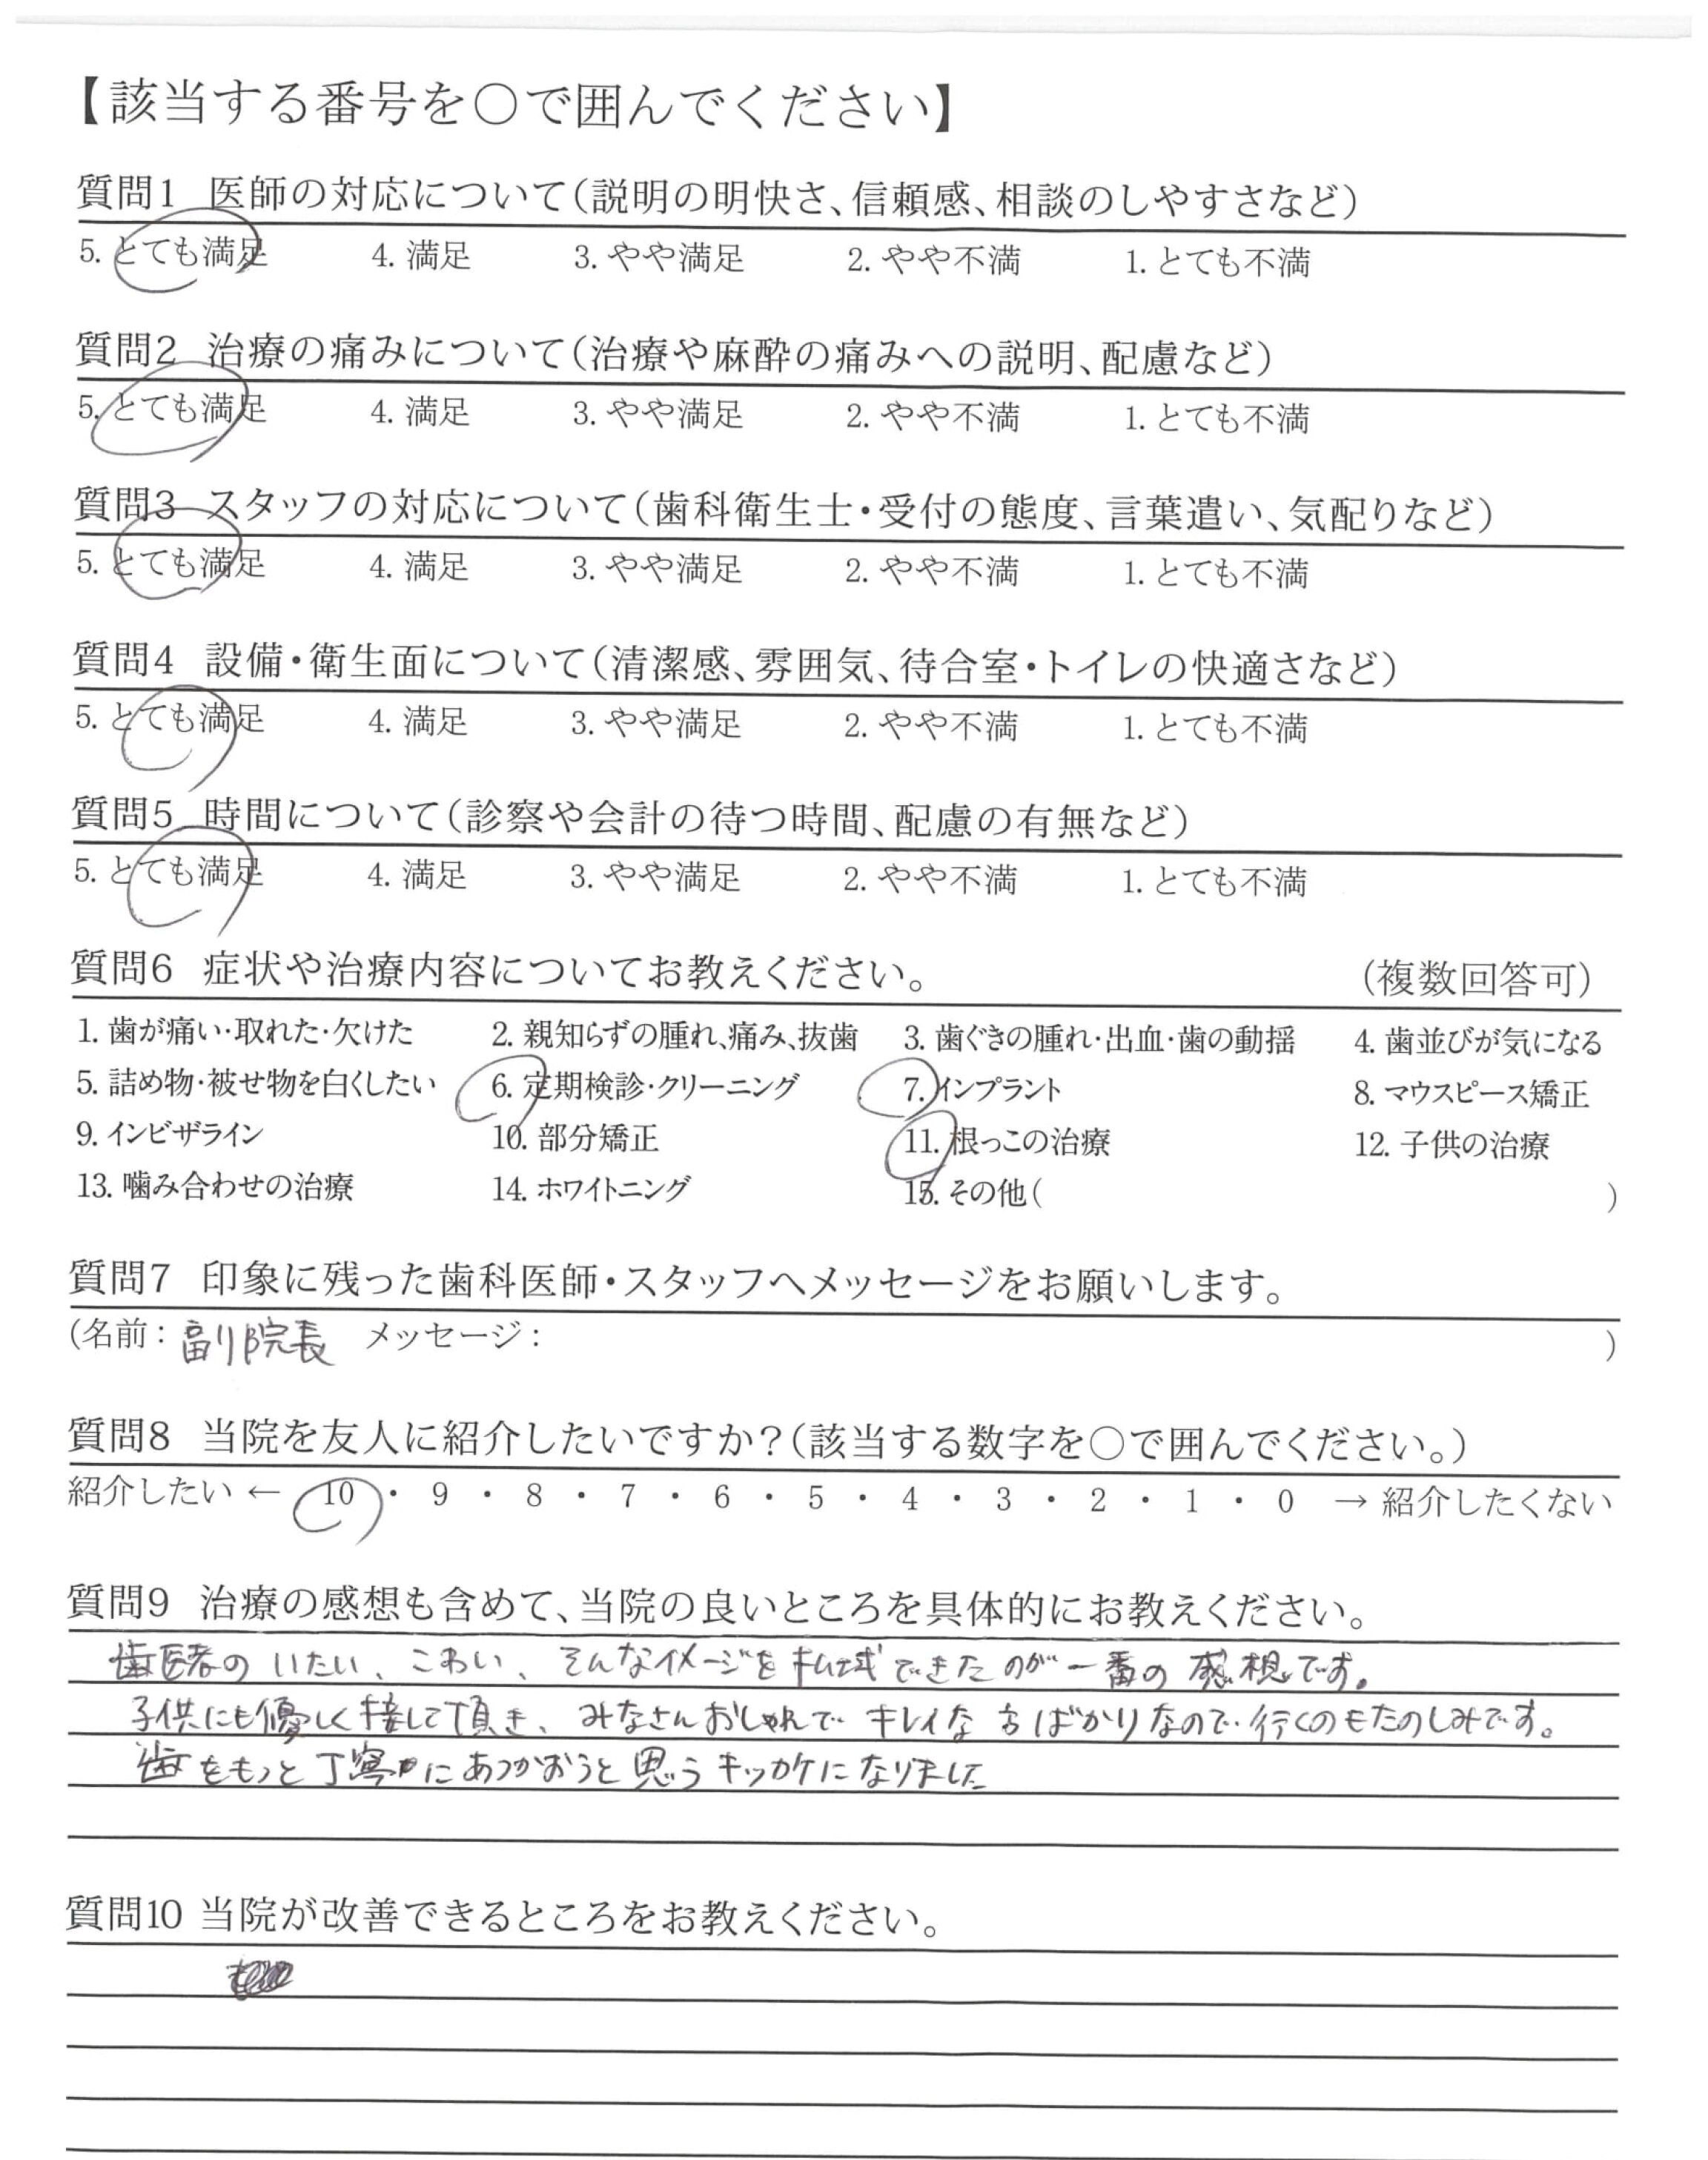 【該当する番号を○で囲んでください】
質問1 医師の対応について(説明の明快さ、信頼感、相談のしやすさなど)
5. とても満足 4. 満足 3. やや満足 2. やや不満 1. とても不満
質問2 治療の痛みについて(治療や麻酔の痛みへの説明、配慮など)
5. とても満足 4. 満足 3. やや満足 2. やや不満 1. とても不満
質問3 スタッフの対応について(歯科衛生士・受付の態度、言葉遣い、気配りなど)
5. とても満足 4. 満足 3. やや満足 2. やや不満 1. とても不満
質問4 設備・衛生面について(清潔感、雰囲気、待合室・トイレの快適さなど)
5. とても満足 4. 満足 3. やや満足 2. やや不満 1. とても不満
質問5 時間について(診察や会計の待つ時間、配慮の有無など)
5. とても満足 4. 満足 3. やや満足 2. やや不満 1. とても不満
質問6 症状や治療内容についてお教えください。 (複数回答可)
1. 歯が痛い・取れた・欠けた 2. 親知らずの腫れ、痛み、抜歯 3. 歯ぐきの腫れ・出血・歯の動揺 4. 歯並びが気になる
5. 詰め物・被せ物を白くしたい 6. 定期検診・クリーニング 7. インプラント 8. マウスピース矯正
9. インビザライン 10. 部分矯正 11. 根っこの治療 12. 子供の治療
13. 噛み合わせの治療 14. ホワイトニング 15. その他( )
質問7 印象に残った歯科医師・スタッフへメッセージをお願いします。
(名前: 副院長 メッセージ: )
質問8 当院を友人に紹介したいですか?(該当する数字を○で囲んでください。)
紹介したい ← 10 ・ 9 ・ 8 ・ 7 ・ 6 ・ 5 ・ 4 ・ 3 ・ 2 ・ 1 ・ 0 → 紹介したくない
質問9 治療の感想も含めて、当院の良いところを具体的にお教えください。
歯医者の いたい、こわい、そんなイメージを払拭できたのが一番の感想です。
子供にも優しく接して頂き、みなさんおしゃれでキレイな方ばかりなので行くのもたのしみです。
歯をもっと丁寧にあつかおうと思うキッカケになりました
質問10 当院が改善できるところをお教えください。